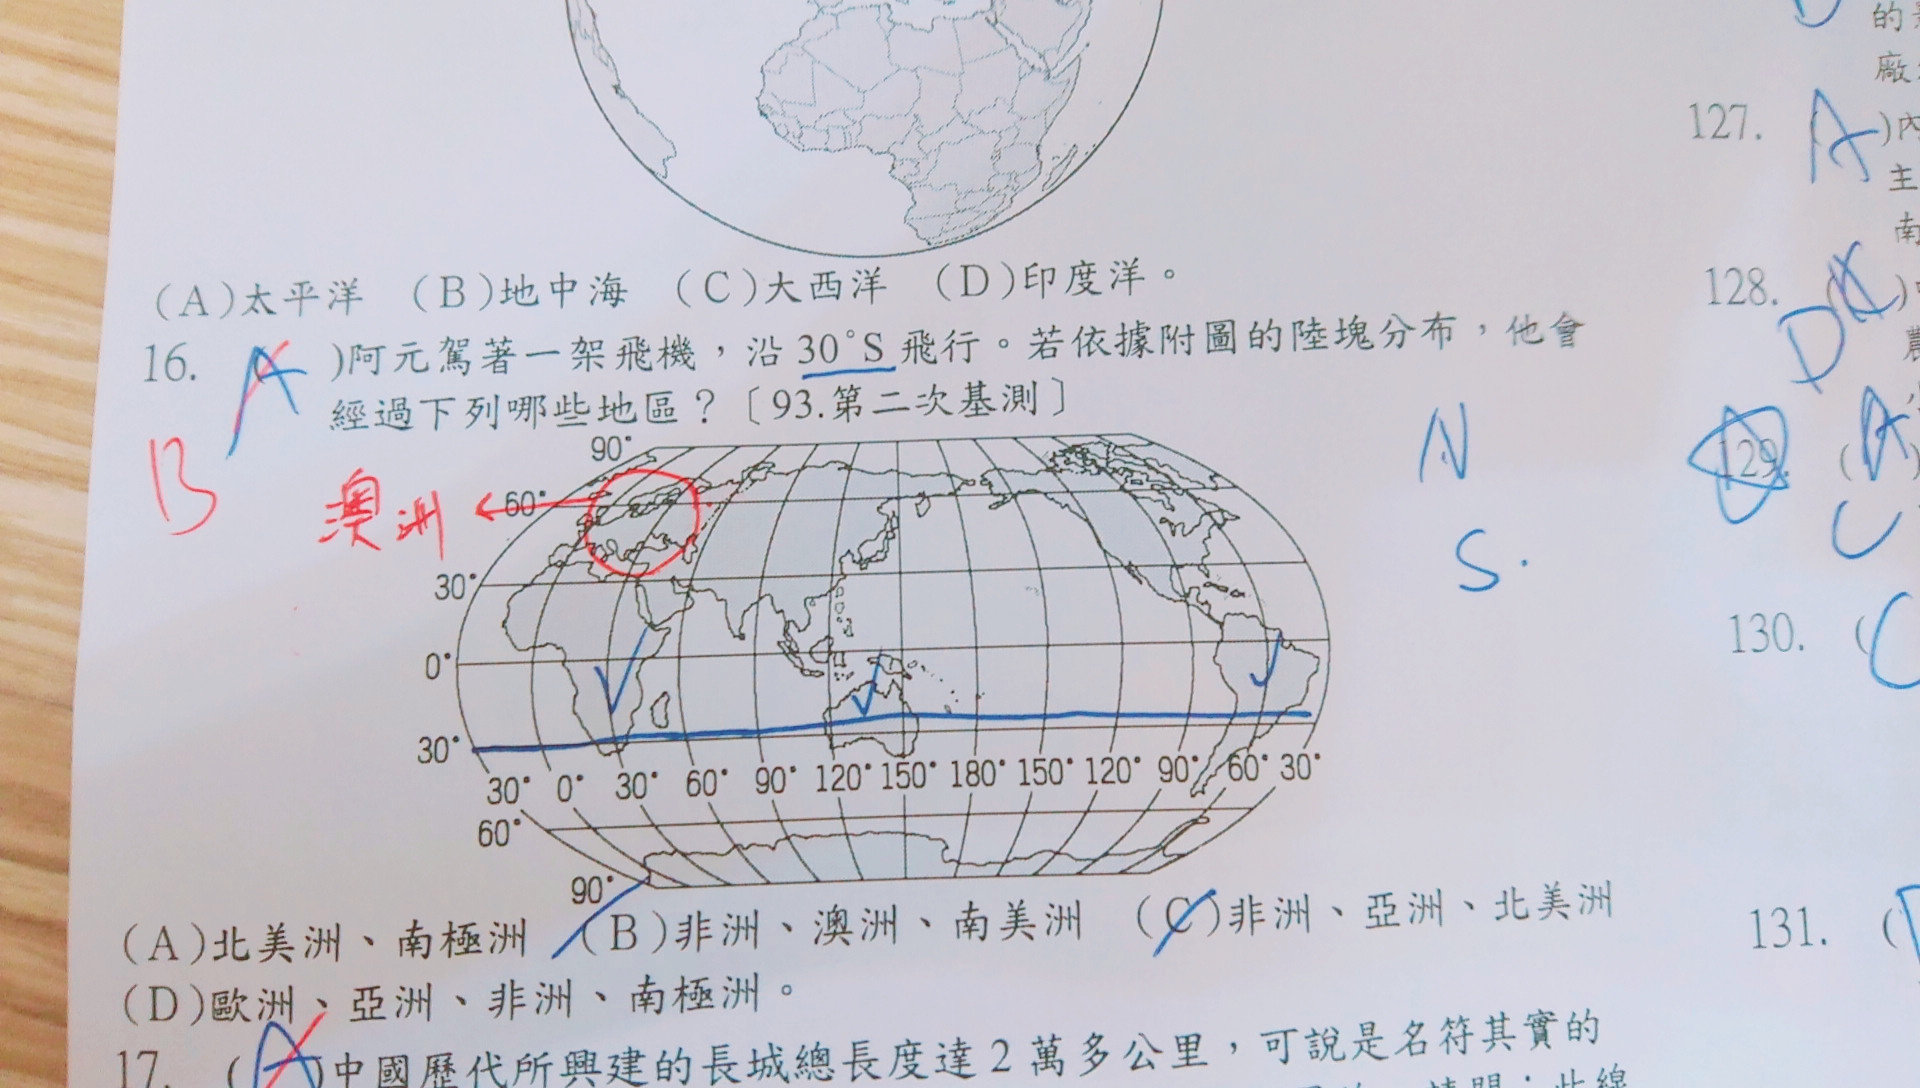 (A)太平洋 (B)地中海 (C)大西洋 (D)印度洋。
16. A )阿元駕著一架飛機，沿 30°S 飛行。若依據附圖的陸塊分布，他會
經過下列哪些地區？〔93.第二次基測〕
B
澳洲
N
S.
90°
60°
30°
0°
30°
30° 0° 30° 60° 90° 120° 150° 180° 150° 120° 90° 60° 30°
60°
90°
(A)北美洲、南極洲 (B)非洲、澳洲、南美洲 (C)非洲、亞洲、北美洲
(D)歐洲、亞洲、非洲、南極洲。
17. (A)中國歷代所興建的長城總長度達 2 萬多公里，可說是名符其實的
的
廠
127. A )內
主
南
128. D )
129. ( A )
C
130. ( C
131. (